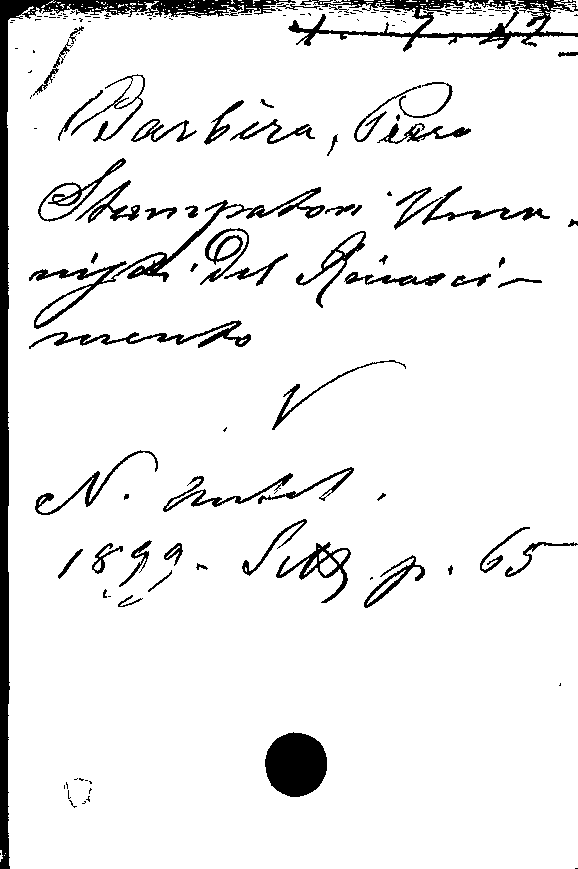 1. 7. 42
Barbèra, Piero
Stampatori Uma-
nisti del Rinasci-
mento
V
N. Antol.
1899. Sett. p. 65